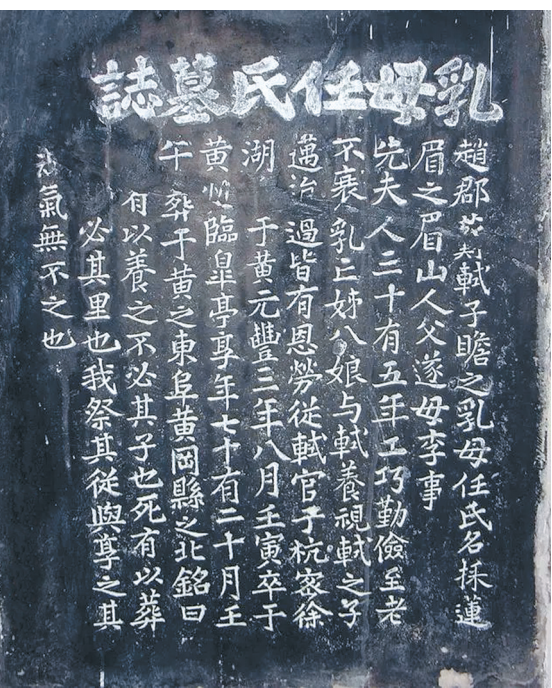 乳母任氏墓誌
趙郡軾子瞻之乳母任氏名採蓮
眉之眉山人父遂母李事
先夫人三十有五年工巧勤儉至老
不衰乳亡姊八娘与軾養視軾之子
邁迨過皆有恩勞從軾官于杭密徐
湖 于黃元豐三年八月壬寅卒于
黃州臨皐亭享年七十有二十月壬
午 葬于黃之東阜黃岡縣之北銘曰
有以養之不必其子也死有以葬
必其里也我祭其從與享之其
氣無不之也